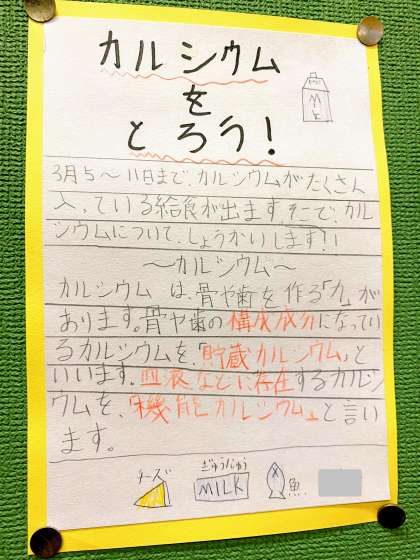 カルシウム
を
とろう!
3月5〜11日まで、カルシウムがたくさん
入っている給食が出ます。そこで、カル
シウムについて、しょうかいします!!
〜カルシウム〜
カルシウムは、骨や歯を作る「力」が
あります。骨や歯の構成成分になってい
るカルシウムを、「貯蔵カルシウム」と
いいます。血液などに存在するカルシ
ウムを、「機能カルシウム」と言い
ます。
チーズ
ぎゅうにゅう
MILK
魚